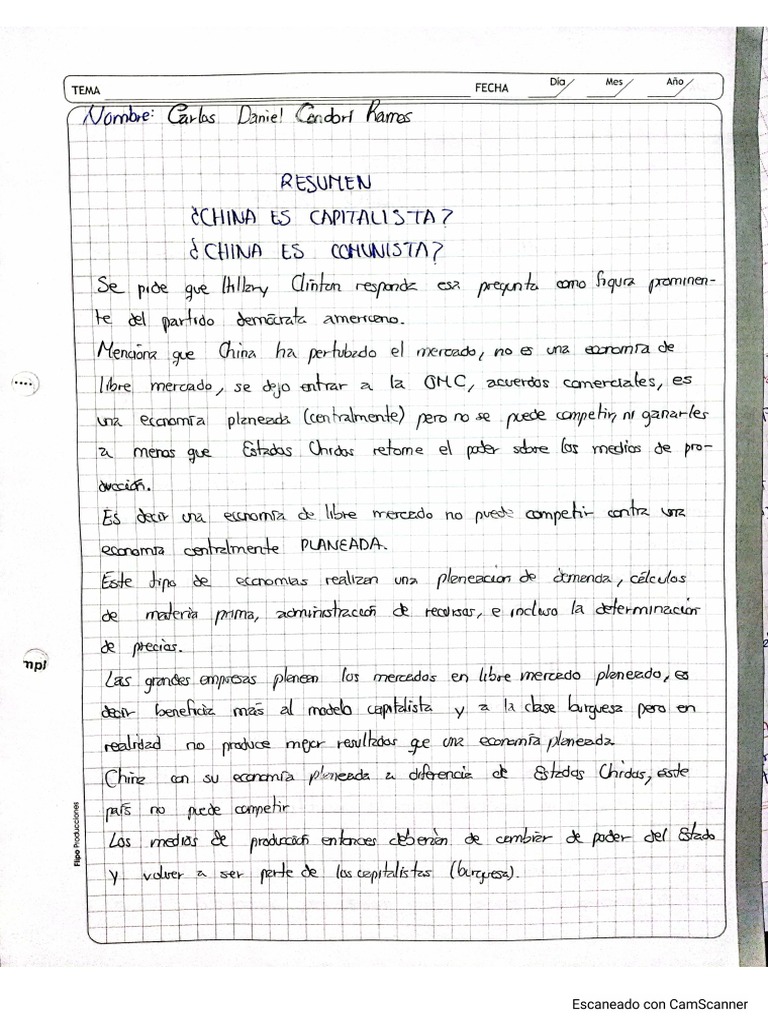 TEMA FECHA Día Mes Año
Nombre: Carlos Daniel Condori Ramos
RESUMEN
¿CHINA ES CAPITALISTA?
¿CHINA ES COMUNISTA?
Se pide que Hillary Clinton responda esa pregunta como figura prominen-
te del partido demócrata americano.
Menciona que China ha pertubado el mercado, no es una economía de
libre mercado, se dejo entrar a la OMC, acuerdos comerciales, es
una economía planeada (centralmente) pero no se puede competir, ni ganarles
a menos que Estados Unidos retome el poder sobre los medios de pro-
ducción.
Es decir una economía de libre mercado no puede competir contra una
economía centralmente PLANEADA.
Este tipo de economias realizan una planeación de demanda, cálculos
de materia prima, administración de recursos, e incluso la determinación
de precios.
Las grandes empresas planean los mercados en libre mercado planeado, es
decir beneficia más al modelo capitalista y a la clase burguesa pero en
realidad no produce mejor resultados que una economía planeada.
China con su economía planeada a diferencia de Estados Unidos, este
país no puede competir
Los medios de producción entonces deberían de cambiar de poder del Estado
y volver a ser parte de los capitalistas (burguesa).
Flipo Producciones
mpl
Escaneado con CamScanner